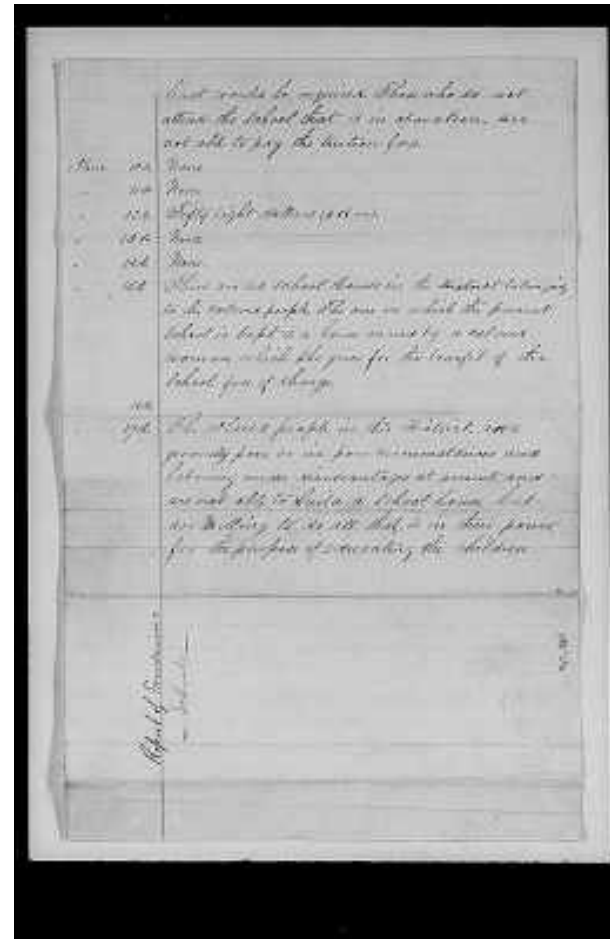 would be required. Those who do not
attend the School that is in operation, are
not able to pay the tuition fees
None
None
Fifty eight
None
None
There are no School houses in the district belonging
to the colored people. The one in which the present
School is kept is a house owned by a colored
woman which she gives for the benefit of the
School free of charge
16th
17th The people in this district are
generally poor in circumstances and
laboring under disadvantages at present and
are not able to build a School house, but
are willing to do all that is in their power
for the purpose of educating the children
Report of
Schools